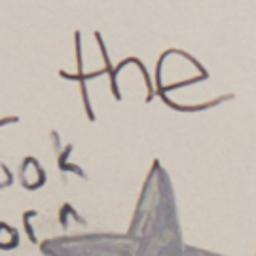 the
ook
orn